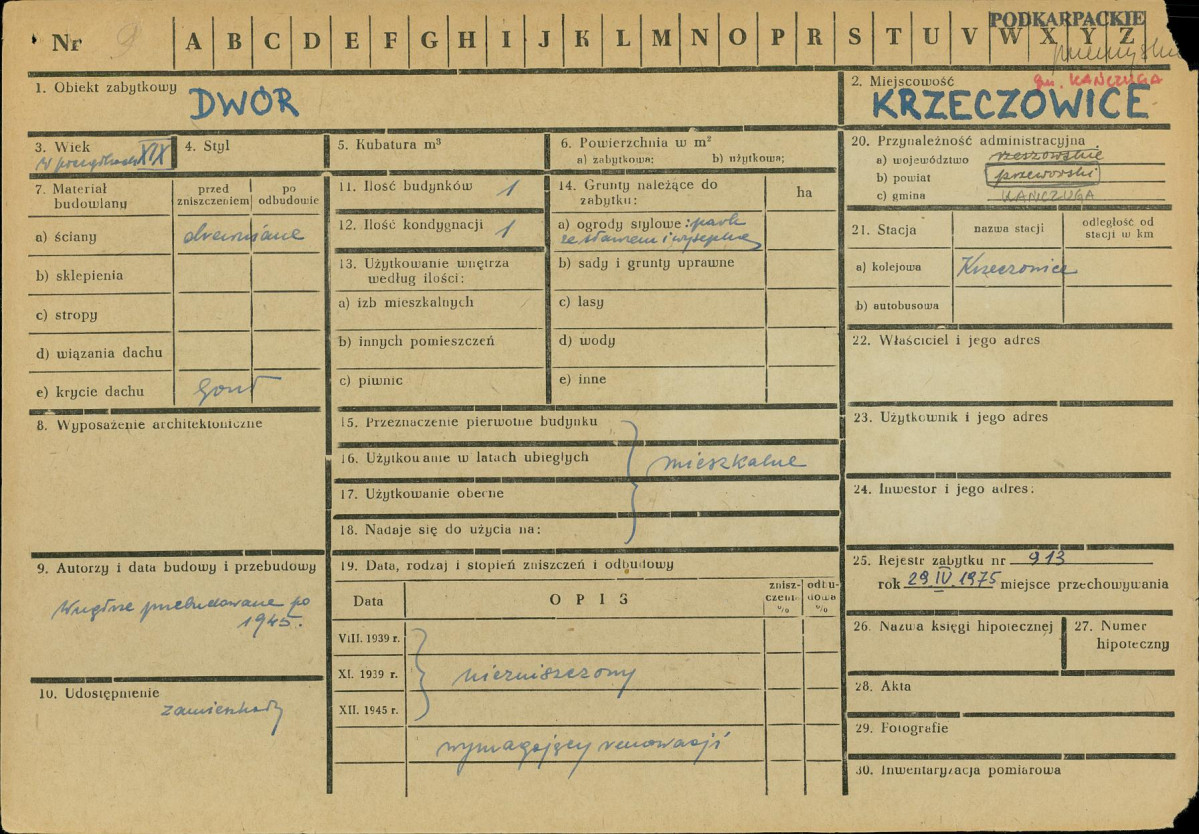 Nr 9 A B C D E F G H I J K L M N O P R S T U V W X Y Z
PODKARPACKIE
1. Obiekt zabytkowy
DWÓR
2. Miejscowość
gm. KAŃCZUGA
KRZECZOWICE
3. Wiek
XIX
4. Styl
5. Kubatura m³
6. Powierzchnia w m²
a) zabytkowa; b) użytkowa;
7. Materiał budowlany
przed zniszczeniem
po odbudowie
a) ściany drewniane
b) sklepienia
c) stropy
d) wiązania dachu
e) krycie dachu gont
8. Wyposażenie architektoniczne
9. Autorzy i data budowy i przebudowy
przebudowane po
1945.
10. Udostępnienie
zamieszkały
11. Ilość budynków 1
12. Ilość kondygnacji 1
13. Użytkowanie wnętrza
według ilości:
a) izb mieszkalnych
b) innych pomieszczeń
c) piwnic
14. Grunty należące do
zabytku:
ha
a) ogrody stylowe: park
ze stawem i wysepką
b) sady i grunty uprawne
c) lasy
d) wody
e) inne
15. Przeznaczenie pierwotne budynku
16. Użytkowanie w latach ubiegłych
mieszkalne
17. Użytkowanie obecne
18. Nadaje się do użycia na:
19. Data, rodzaj i stopień zniszczeń i odbudowy
Data
OPIS
znisz-
czenia
%
odbu-
dowa
%
VIII. 1939 r.
XI. 1939 r.
niezniszczony
XII. 1945 r.
wymagający renowacji
20. Przynależność administracyjna
a) województwo rzeszowskie
b) powiat przeworski
c) gmina KAŃCZUGA
21. Stacja
nazwa stacji
odległość od
stacji w km
a) kolejowa Krzeczowice
b) autobusowa
22. Właściciel i jego adres
23. Użytkownik i jego adres
24. Inwestor i jego adres:
25. Rejestr zabytku nr 913
rok 29.IV.1975 miejsce przechowywania
26. Nazwa księgi hipotecznej
27. Numer
hipoteczny
28. Akta
29. Fotografie
30. Inwentaryzacja pomiarowa